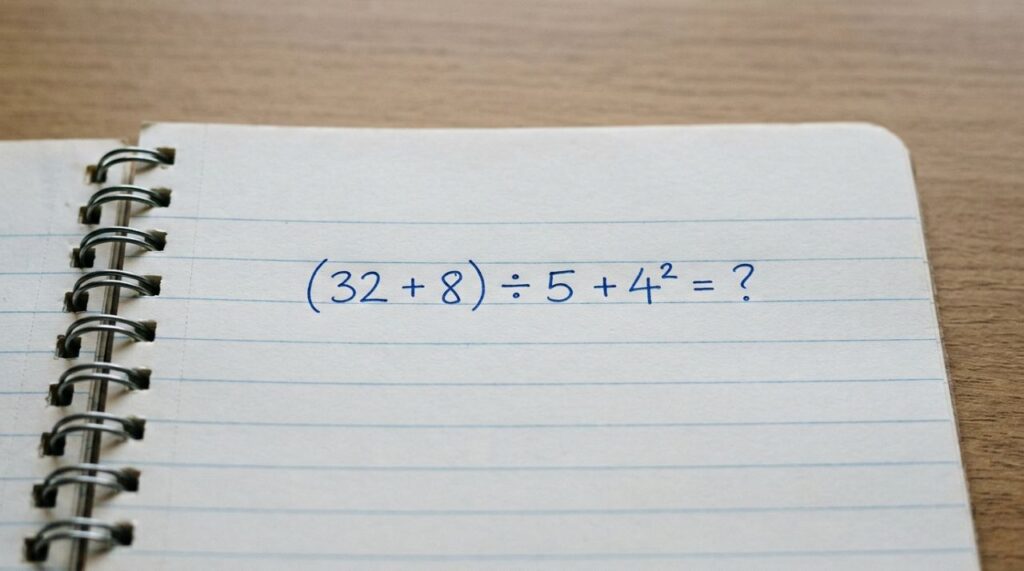 (32 + 8) ÷ 5 + 4² = ?